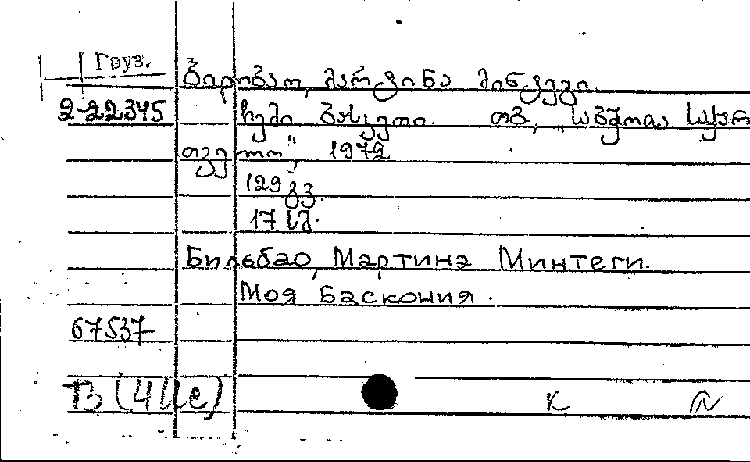 Груз.
ბილბაო, მარტინა მინტეგი.
2-22345 ჩემი ბასკეთი. თბ., „საბჭოთა საქარ
თველო", 1972
129 გვ.
17 სმ.
Бильбао, Мартина Минтеги.
Моя Баскония.
67537
В (4Ис) К